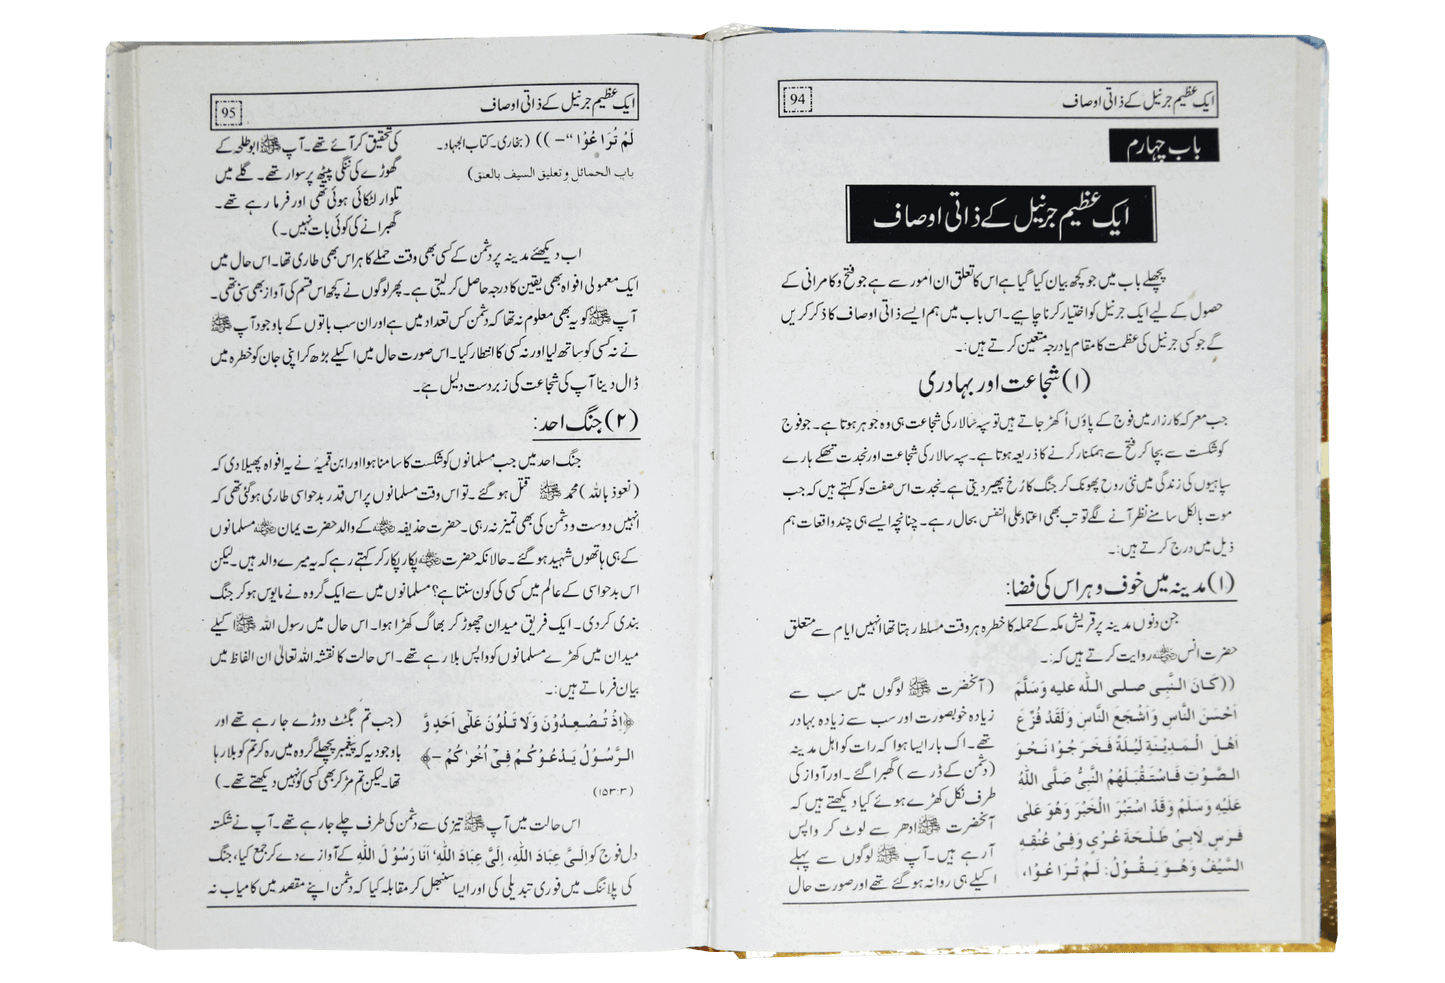 ایک عظیم جرنیل کے ذاتی اوصاف 94
باب چہارم
ایک عظیم جرنیل کے ذاتی اوصاف
پچھلے باب میں جو کچھ بیان کیا گیا ہے اس کا تعلق ان امور سے ہے جو فتح و کامرانی کے
حصول کے لیے ایک جرنیل کو اختیار کرنا چاہیے۔ اس باب میں ہم ایسے ذاتی اوصاف کا ذکر کریں
گے جو کسی جرنیل کی عظمت کا مقام یا درجہ متعین کرتے ہیں:۔
(۱) شجاعت اور بہادری
جب معرکہ کارزار میں فوج کے پاؤں اُکھڑ جاتے ہیں تو سپہ سالار کی شجاعت ہی وہ جوہر ہوتا ہے۔ جو فوج
کو شکست سے بچا کر فتح سے ہمکنار کرنے کا ذریعہ ہوتا ہے۔ سپہ سالار کی شجاعت اور نجدت تھکے ہارے
سپاہیوں کی زندگی میں نئی روح پھونک کر جنگ کا رُخ پھیر دیتی ہے۔ نجدت اس صفت کو کہتے ہیں کہ جب
موت بالکل سامنے نظر آنے لگے تو تب بھی اعتماد علی النفس بحال رہے۔ چنانچہ ایسے ہی چند واقعات ہم
ذیل میں درج کرتے ہیں:۔
(۱) مدینہ میں خوف و ہراس کی فضا:
جن دنوں مدینہ پر قریش مکہ کے حملہ کا خطرہ ہر وقت مسلط رہتا تھا انہیں ایام سے متعلق
حضرت انس ؓ روایت کرتے ہیں کہ:۔
((کَانَ النَّبِی صلی اللہ علیہ وَسَلَّمَ
اَحْسَنَ النَّاسِ وَاَشْجَعَ النَّاسِ وَلَقَدْ فُزِّعَ
اَهْلَ الْمَدِیْنَةِ لَیْلَةً فَخَرَجُوْا نَحْوَ
الصَّوْتِ فَاسْتَقْبَلَهُمُ النَّبِیُّ صَلَّی اللّٰهُ
عَلَیْهِ وَسَلَّمَ وَقَدْ اسْتَبْرَ الْخَبْرَ وَهُوَ عَلٰی
فَرَسٍ لِاَبِیْ طَلْحَةَ عُرْیٍ وَفِیْ عُنُقِهِ
السَّیْفُ وَهُوَ یَقُوْلُ: لَمْ تُرَاعُوْا،
(آنحضرت ﷺ لوگوں میں سب سے
زیادہ خوبصورت اور سب سے زیادہ بہادر
تھے۔ اک بار ایسا ہوا کہ رات کو اہل مدینہ
(دشمن کے ڈر سے) گھبرا گئے۔ اور آواز کی
طرف نکل کھڑے ہوئے کیا دیکھتے ہیں کہ
آنحضرت ﷺ ادھر سے لوٹ کر واپس
آرہے ہیں۔ آپ ﷺ لوگوں سے پہلے
اکیلے ہی روانہ ہو گئے تھے اور صورت حال
ایک عظیم جرنیل کے ذاتی اوصاف 95
لَمْ تُرَاعُوْا“۔)) (بخاری۔ کتاب الجہاد۔
باب الحمائل و تعلیق السیف بالعنق)
کی تحقیق کر آئے تھے۔ آپ ﷺ ابو طلحہ کے
گھوڑے کی ننگی پیٹھ پر سوار تھے۔ گلے میں
تلوار لٹکائی ہوئی تھی اور فرما رہے تھے۔
گھبرانے کی کوئی بات نہیں۔)
اب دیکھئے مدینہ پر دشمن کے کسی بھی وقت حملے کا ہراس بھی طاری تھا۔ اس حال میں
ایک معمولی افواہ بھی یقین کا درجہ حاصل کر لیتی ہے۔ پھر لوگوں نے کچھ اس قسم کی آواز بھی سنی تھی۔
آپ ﷺ کو یہ بھی معلوم نہ تھا کہ دشمن کس تعداد میں ہے اور ان سب باتوں کے باوجود آپ ﷺ
نے نہ کسی کو ساتھ لیا اور نہ کسی کا انتظار کیا۔ اس صورت حال میں اکیلے بڑھ کر اپنی جان کو خطرہ میں
ڈال دینا آپ کی شجاعت کی زبردست دلیل ہے۔
(۲) جنگ احد:
جنگ احد میں جب مسلمانوں کو شکست کا سامنا ہوا اور ابن قمیہ نے یہ افواہ پھیلا دی کہ
(نعوذ باللہ) محمد ﷺ قتل ہو گئے۔ تو اس وقت مسلمانوں پر اس قدر بدحواسی طاری ہو گئی تھی کہ
انہیں دوست و دشمن کی بھی تمیز نہ رہی۔ حضرت حذیفہ ؓ کے والد حضرت یمان ؓ مسلمانوں
کے ہی ہاتھوں شہید ہو گئے۔ حالانکہ حضرت ؓ پکار پکار کر کہتے رہے کہ یہ میرے والد ہیں۔ لیکن
اس بدحواسی کے عالم میں کسی کی کون سنتا ہے؟ مسلمانوں میں سے ایک گروہ نے مایوس ہو کر جنگ
بندی کر دی۔ ایک فریق میدان چھوڑ کر بھاگ کھڑا ہوا۔ اس حال میں رسول اللہ ﷺ اکیلے
میدان میں کھڑے مسلمانوں کو واپس بلا رہے تھے۔ اس حالت کا نقشہ اللہ تعالیٰ ان الفاظ میں
بیان فرماتے ہیں:۔
﴿اِذْ تُصْعِدُوْنَ وَلَا تَلْوٗنَ عَلٰٓی اَحَدٍ وَّ
الرَّسُوْلُ یَدْعُوْکُمْ فِیْٓ اُخْرٰىکُمْ۔﴾
(۱۵۳:۳)
(جب تم بگٹٹ دوڑے جا رہے تھے اور
باوجود یہ کہ پیغمبر پچھلے گروہ میں رہ کر تم کو بلا رہا
تھا۔ لیکن تم مڑ کر بھی کسی کو نہیں دیکھتے تھے۔)
اس حالت میں آپ ﷺ تیزی سے دشمن کی طرف چلے جا رہے تھے۔ آپ نے شکستہ
دل فوج کو اِلَیَّ عِبَادَ اللّٰہِ، اِلَیَّ عِبَادَ اللّٰہِ، اَنَا رَسُوْلَ اللّٰہِ کے آوازے دے کر جمع کیا، جنگ
کی پلاننگ میں فوری تبدیلی کی اور ایسا سنبھل کر مقابلہ کیا کہ دشمن اپنے مقصد میں کامیاب نہ